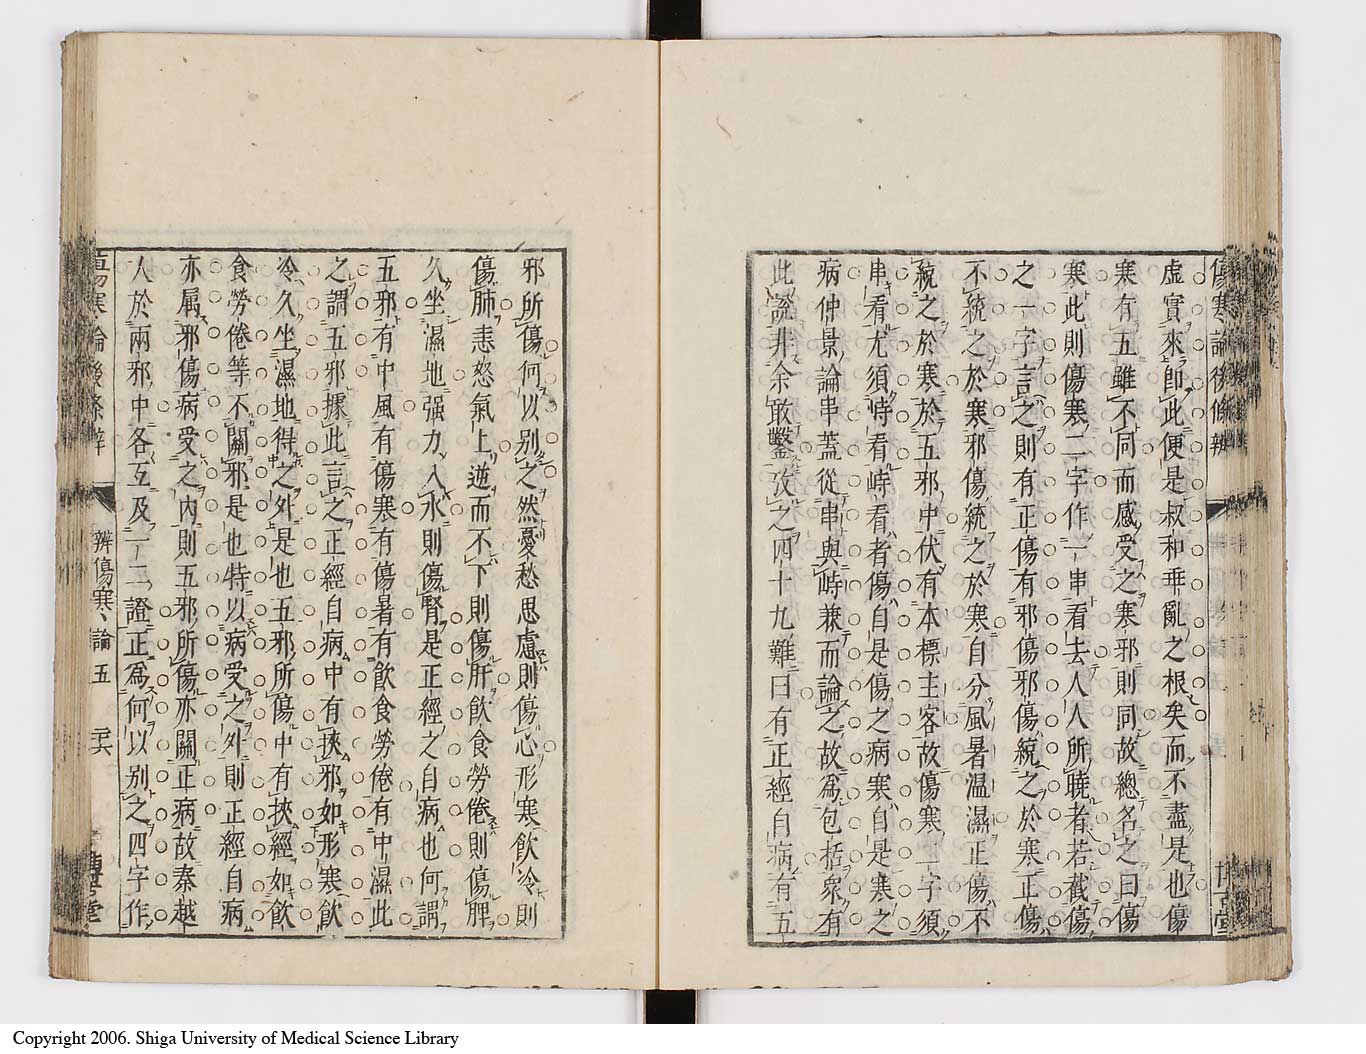 傷寒論後條辨
博古堂
虛實來卽此便是叔和乖亂之根矣而不盡是也傷
寒有五雖不同而感受之寒邪則同故總名之曰傷
寒此則傷寒二字作一串看去人人所曉者若截傷
之一字言之則有正傷有邪傷邪傷統之於寒正傷
不統之於寒邪傷統之於寒自分風暑温濕正傷不
統之於寒於五邪中伏有本標主客故傷寒一字須
串看尤須峙看峙看者傷自是傷之病寒自是寒之
病仲景論串蓋從串與峙兼而論之故爲包括衆有
此說非余敢鑿攷之四十九難曰有正經自病有五
邪所傷何以别之然憂愁思慮則傷心形寒飲冷則
傷肺恚怒氣上逆而不下則傷肝飲食勞倦則傷脾
久坐濕地强力入水則傷腎是正經之自病也何謂
五邪有中風有傷寒有傷暑有飲食勞倦有中濕此
之謂五邪據此言之正經自病中有挾邪如形寒飲
冷久坐濕地得之外是也五邪所傷中有挾經如飲
食勞倦等不關邪是也特以病受之外則正經自病
亦屬邪傷病受之內則五邪所傷亦關正病故秦越
人於兩邪中各互及一二證正爲何以别之四字作
傷寒論後條辨
辨傷寒論五
二六
博古堂
Copyright 2006. Shiga University of Medical Science Library